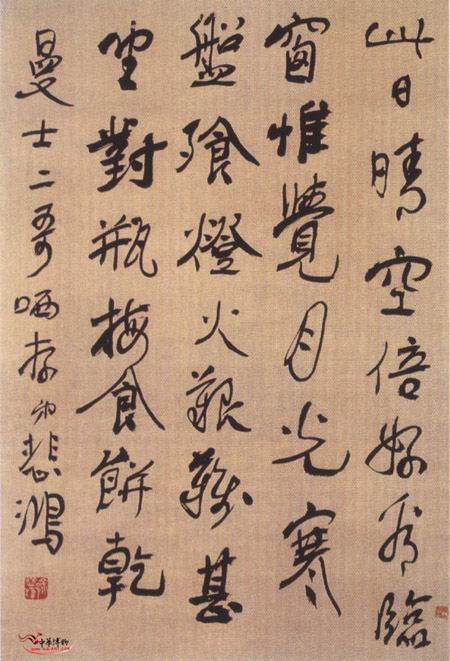 此日晴空倍好看臨
窗惟覺月光寒
盤飱燈火艱難甚
坐對瓶梅食餅乾
曼士二哥哂存弟悲鴻
中华博物